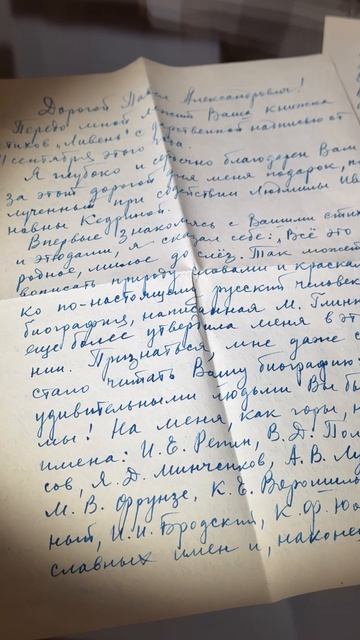 Дорогой Павел Александрович!
Передо мной лежит Ваша книжка
стихов „Ливень" с дарственной надписью от
11 сентября этого года.
Я глубоко и сердечно благодарен Вам
за этот дорогой для меня подарок, по
лученный при содействии Людмилы Ива
новны Кедриной.
Впервые знакомясь с Вашими сти
и этюдами, я сказал себе: „Всё это
родное, милое до слёз. Так может
вописать природу словами и краска
ко по-настоящему русский человек
биография, написанная М.
еще более утвердила меня в эт
нии. Признаться, мне даже с
стало читать Вашу биографию:
удивительными людьми Вы бы
мы! На меня, как горы,
имена: И.Е. Репин, В.Д. Пол
сов, Я.Д. Минченков, А.В. Лу
М.В. Фрунзе, К.Е. Ворошил
ный, И.И. Бродский, К.Ф. Юо
славных имен и, наконец